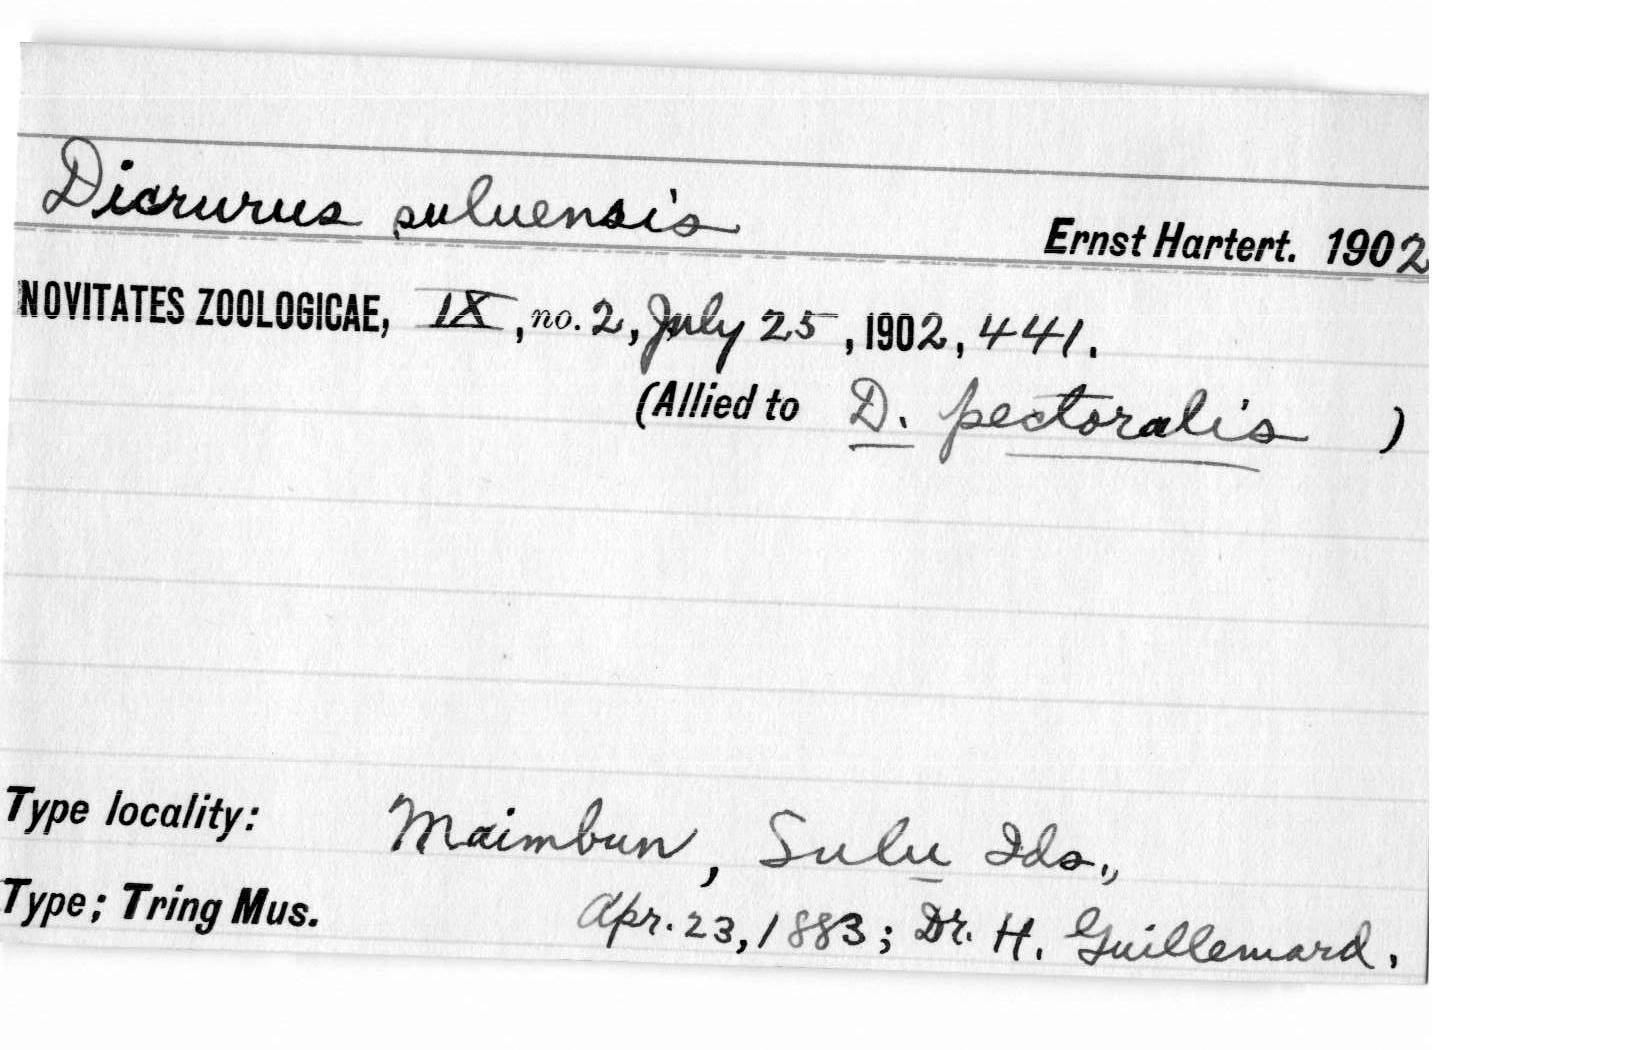 Dicrurus suluensis
Ernst Hartert. 1902
NOVITATES ZOOLOGICAE, IX, no. 2, July 25, 1902, 441.
(Allied to D. pectoralis )
Type locality: Maimbun, Sulu Ids.,
Type; Tring Mus. Apr. 23, 1883; Dr. H. Guillemard.